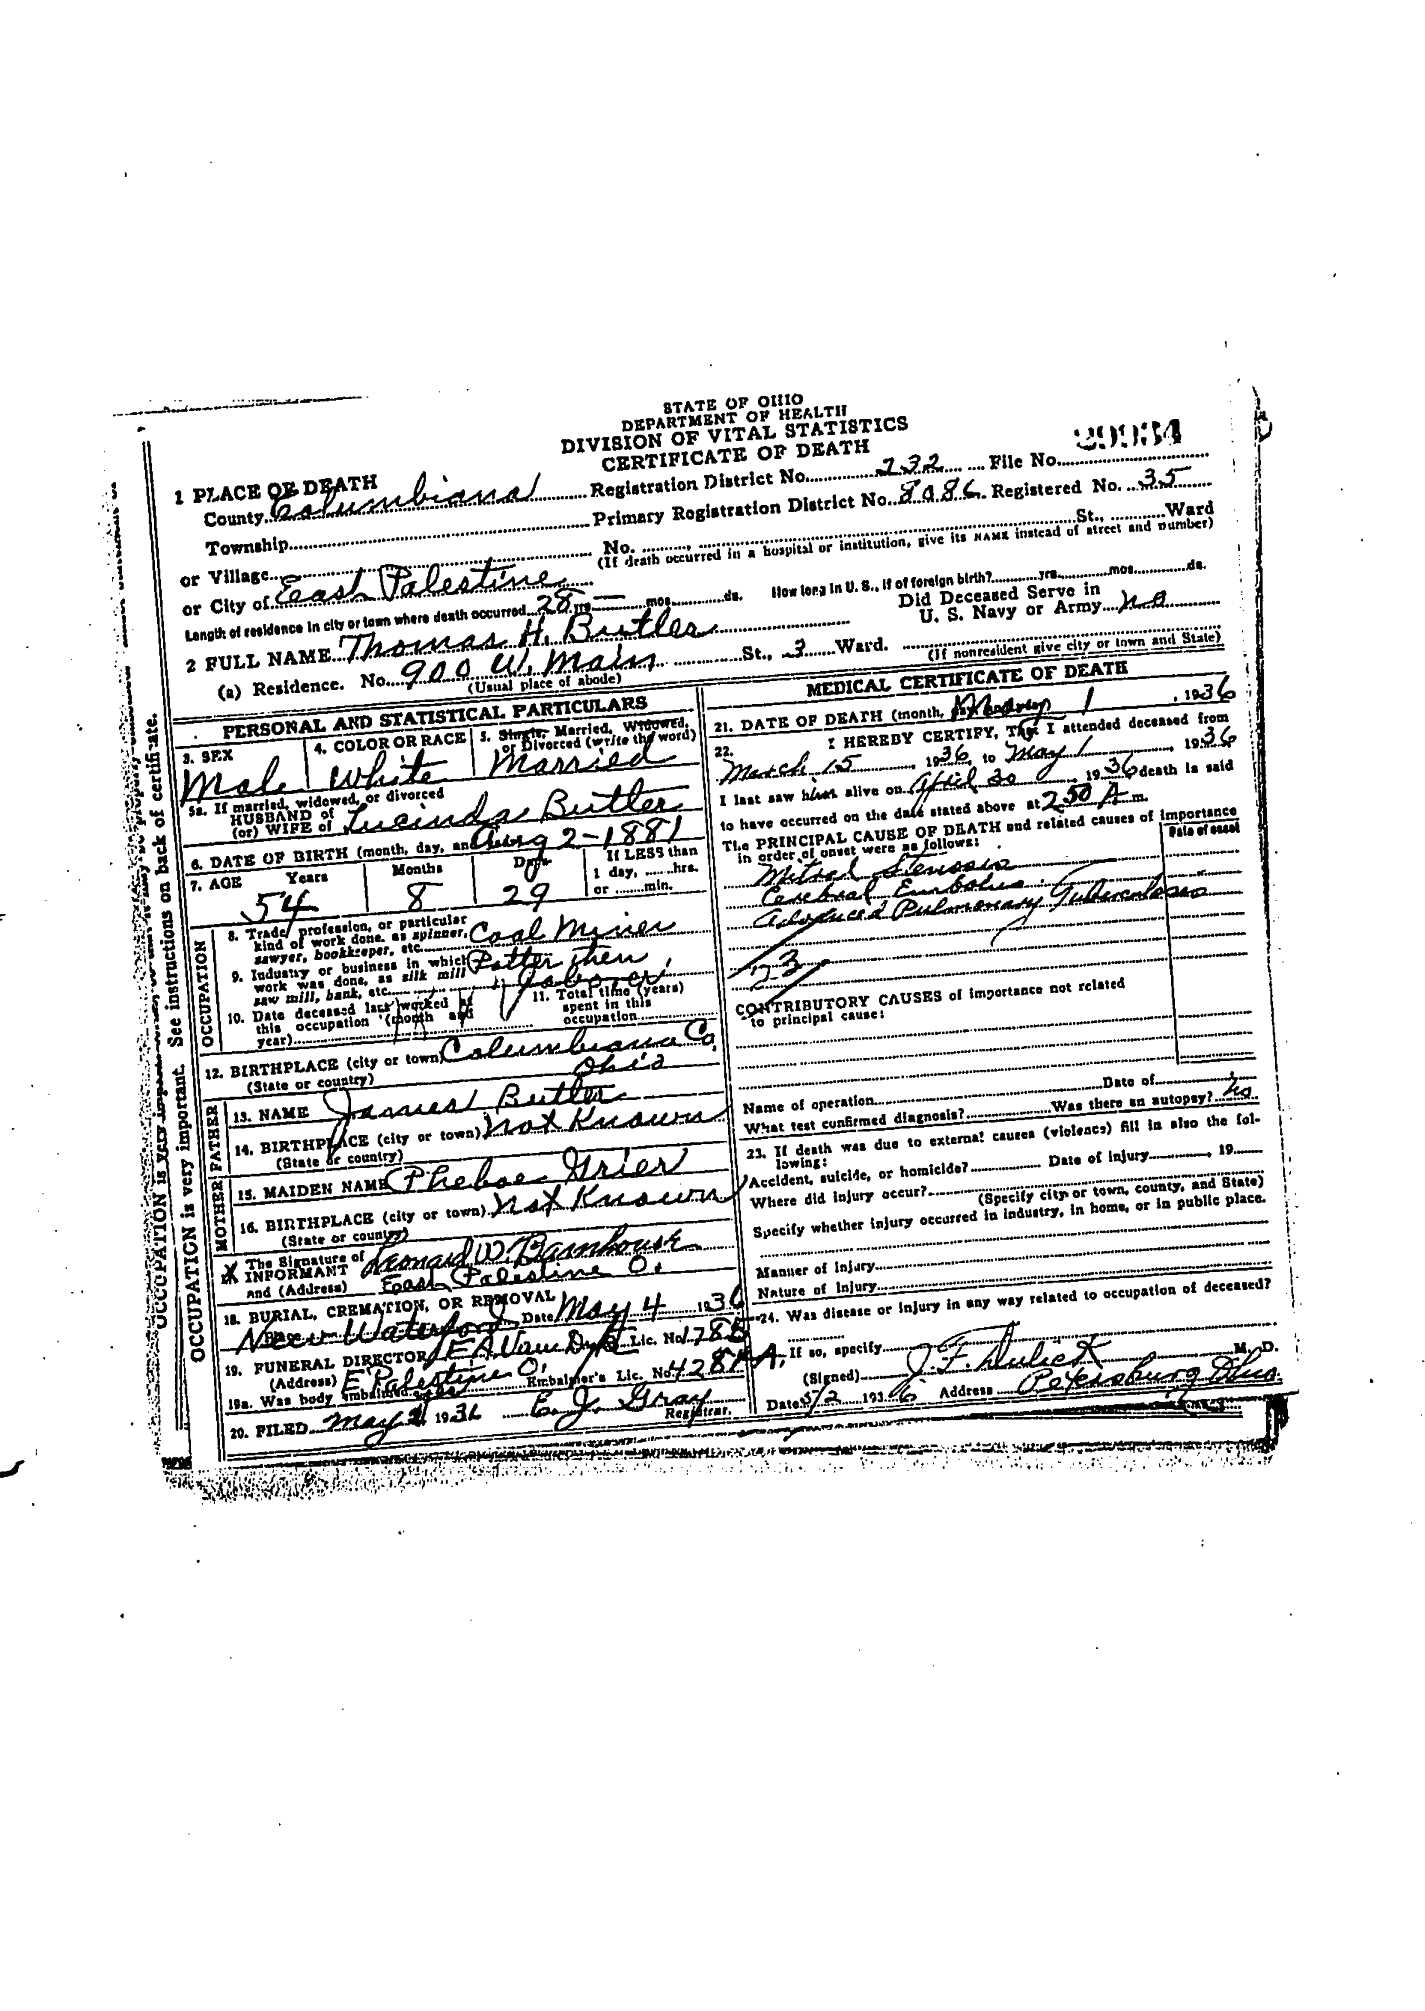 STATE OF OHIO
DEPARTMENT OF HEALTH
DIVISION OF VITAL STATISTICS
CERTIFICATE OF DEATH
1 PLACE OF DEATH
County Columbiana Registration District No. 232 File No.
Township Primary Registration District No. 8086 Registered No. 35
or Village No. St., Ward
(If death occurred in a hospital or institution, give its NAME instead of street and number)
or City of East Palestine
Length of residence in city or town where death occurred 28 yrs. — mos. ds. How long in U. S., if of foreign birth? yrs. mos. ds.
Did Deceased Serve in
U. S. Navy or Army no
2 FULL NAME Thomas H. Butler
(a) Residence. No. 900 W. Main St., 3 Ward.
(Usual place of abode) (If nonresident give city or town and State)
PERSONAL AND STATISTICAL PARTICULARS
3. SEX
Male
4. COLOR OR RACE
White
5. Single, Married, Widowed,
or Divorced (write the word)
Married
5a. If married, widowed, or divorced
HUSBAND of
(or) WIFE of Lucinda Butler
6. DATE OF BIRTH (month, day, and Aug 2-1881
7. AGE Years Months Days If LESS than
1 day, hrs.
or min.
54 8 29
OCCUPATION
8. Trade, profession, or particular
kind of work done, as spinner,
sawyer, bookkeeper, etc. Coal Miner
9. Industry or business in which
work was done, as silk mill
saw mill, bank, etc. Potter then
Laborer
10. Date deceased last worked at
this occupation (month and
year)
11. Total time (years)
spent in this
occupation
12. BIRTHPLACE (city or town) Columbiana Co.
(State or country) Ohio
FATHER
13. NAME James Butler
14. BIRTHPLACE (city or town) Not Known
(State or country)
MOTHER
15. MAIDEN NAME Pheboe Grier
16. BIRTHPLACE (city or town) Not Known
(State or country)
The Signature of
INFORMANT Leonard W. Barnhouse
and (Address) East Palestine O.
18. BURIAL, CREMATION, OR REMOVAL
Place New Waterford Date May 4 1936
19. FUNERAL DIRECTOR E A Van Dyke Lic. No. 178B
(Address) E Palestine O.
19a. Was body embalmed Embalmer's Lic. No. 428 A
20. FILED May 1936 E. J. Gray
Registrar.
MEDICAL CERTIFICATE OF DEATH
21. DATE OF DEATH (month, May 1, 1936
22. I HEREBY CERTIFY, That I attended deceased from
March 15, 1936, to May 1, 1936
I last saw him alive on April 30, 1936 death is said
to have occurred on the date stated above at 2:50 A m.
The PRINCIPAL CAUSE OF DEATH and related causes of importance
in order of onset were as follows:
Date of onset
Mitral Stenosis
Cerebral Embolus
Advanced Pulmonary Tuberculosis
23
CONTRIBUTORY CAUSES of importance not related
to principal cause:
Name of operation Date of
What test confirmed diagnosis? Was there an autopsy? No
23. If death was due to external causes (violence) fill in also the fol-
lowing:
Accident, suicide, or homicide? Date of injury , 19
Where did injury occur?
(Specify city or town, county, and State)
Specify whether injury occurred in industry, in home, or in public place.
Manner of Injury
Nature of Injury
24. Was disease or injury in any way related to occupation of deceased?
If so, specify
(Signed) M. D.
Date 5/2 1936 Address Petersburg Ohio.
See instructions on back of certificate.
OCCUPATION is very important.